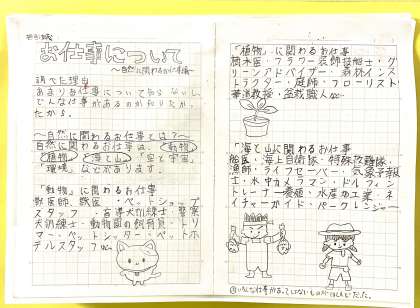 お仕事について
〜自然に関わるお仕事編〜
調べた理由
あまりお仕事について知らないし、
どんな仕事があるのか知りたかっ
たから。
〜自然に関わるお仕事とは?〜
自然に関わるお仕事は、「動物」
「植物」「海と山」「空と宇宙」
「環境」などがあります。
「動物」に関わるお仕事
獣医師、獣医・ペットショップ
スタッフ・盲導犬訓練士・警察
犬訓練士・動物園の飼育員・トリ
マー・ペットシッター・ペットホ
テルスタッフetc
「植物」に関わるお仕事
樹木医・フラワー装飾技能士・グ
リーンアドバイザー・森林インス
トラクター・庭師・フローリスト
華道教授・盆栽職人etc
「海と山」に関わるお仕事
船医・海上自衛隊・特殊救難隊・
漁師・ライフセーバー・気象予報
士・水中カメラマン・ドルフィン
トレーナー・養殖・水産加工業・ネ
イチャーガイド・パークレンジャー